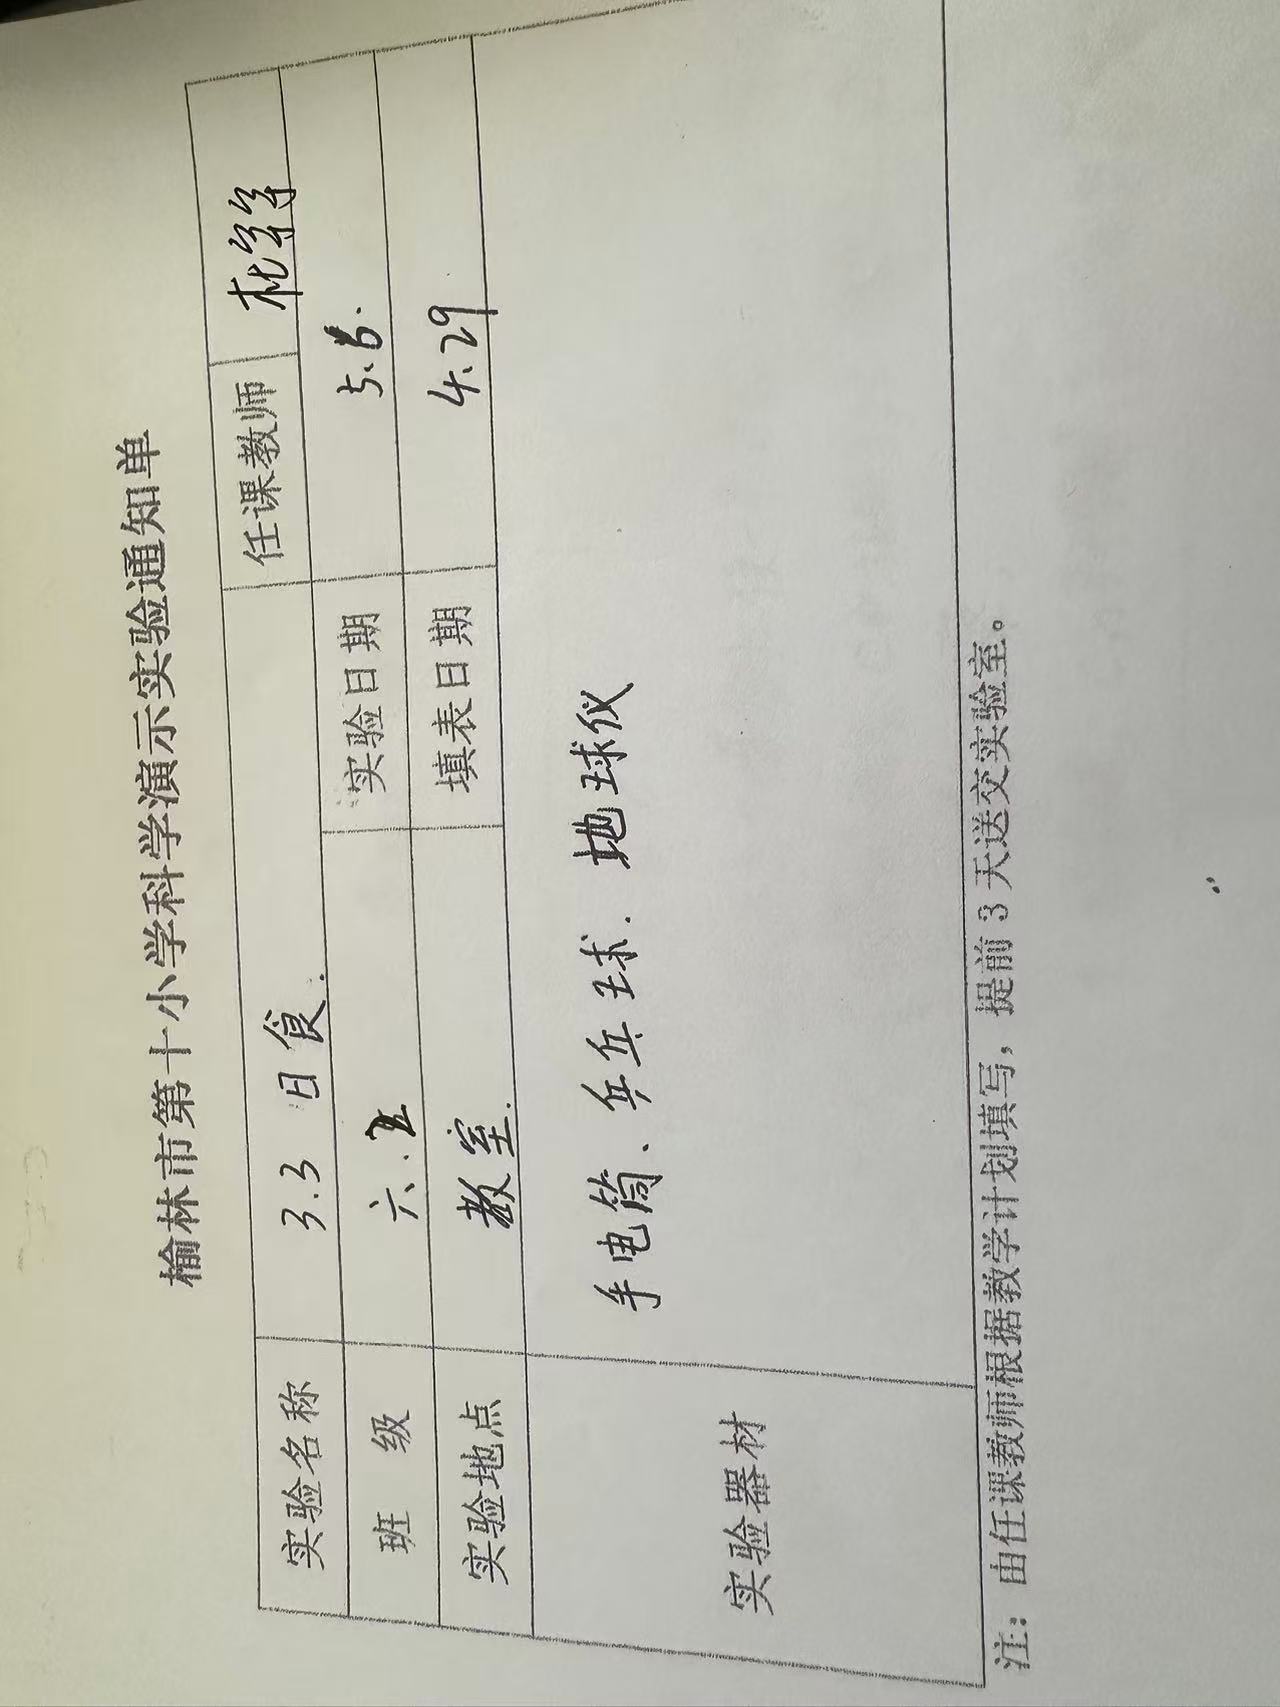 榆林市第十小学科学演示实验通知单
实验名称 3.3 日食. 任课教师
班 级 六.五 实验日期
实验地点 教室. 填表日期 4.29
实验器材 手电筒、乒乓球、地球仪
注：由任课教师根据教学计划填写，提前 3 天送交实验室。